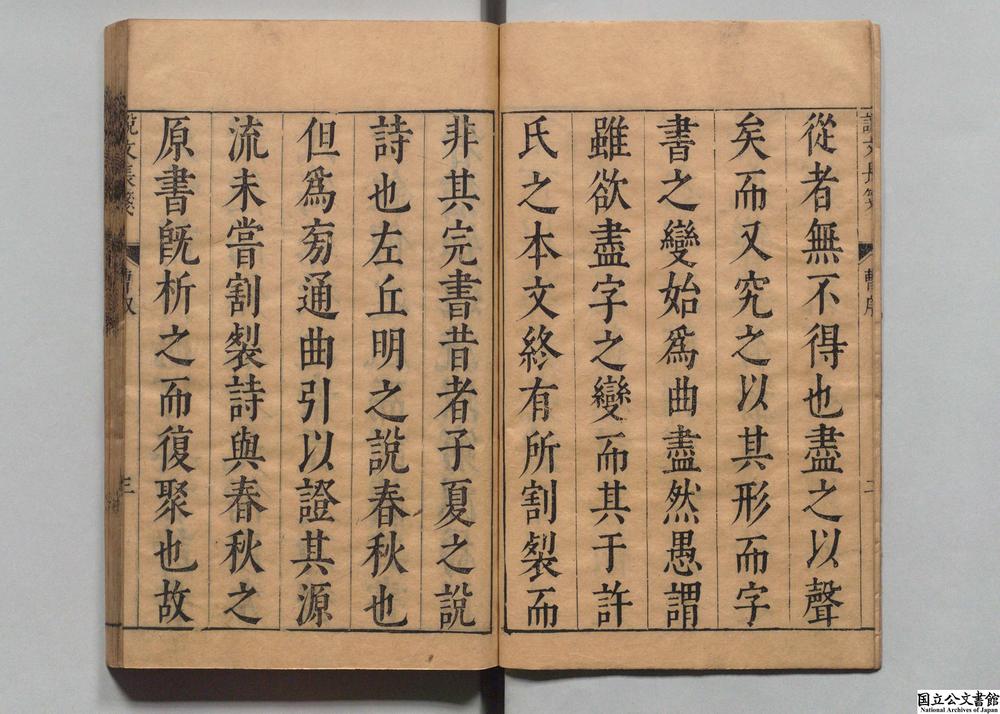 從者無不得也盡之以聲
矣而又究之以其形而字
書之變始爲曲盡然愚謂
雖欲盡字之變而其于許
氏之本文終有所割製而
非其完書昔者子夏之說
詩也左丘明之說春秋也
但爲旁通曲引以證其源
流未嘗割製詩與春秋之
原書旣析之而復聚也故
說文長箋
三
国立公文書館
National Archives of Japan